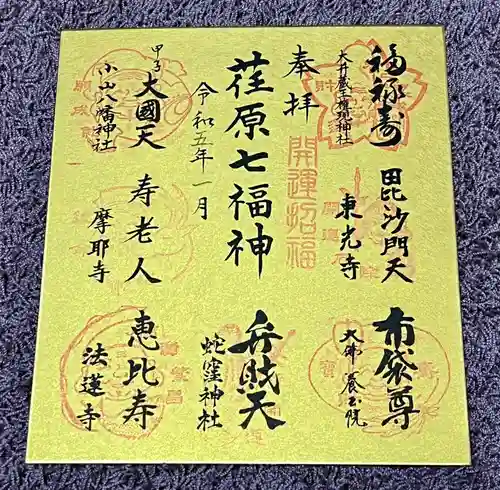 福禄寿
大井蔵王権現神社
毘沙門天
東光寺
布袋尊
大佛養玉院
奉拝
開運招福
荏原七福神
令和五年一月
弁財天
蛇窪神社
甲子
大國天
小山八幡神社
寿老人
摩耶寺
恵比寿
法蓮寺